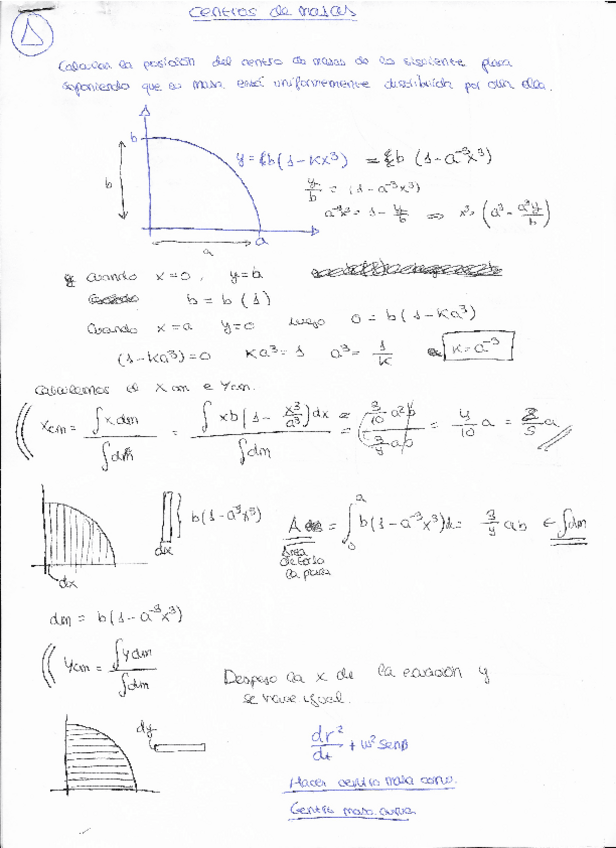 Centros de masas
1
Calcular la posición del centro de masas de la siguiente placa
suponiendo que su masa está uniformemente distribuida por dm ella.
b
y = b(1 - Kx³) = b (1 - a⁻³x³)
b
y/b = (1 - a⁻³x³)
a⁻³x³ = 1 - y/b ⇒ x³ = (a³ - a³y/b)
a
a
b
Cuando x=0, y=b
b = b (1)
Cuando x=a y=0 luego 0 = b(1-Ka³)
(1-Ka³)=0 Ka³=1 a³= 1/K K=a⁻³
Calculemos el Xcm e Ycm.
Xcm = ∫xdm / ∫dm = ∫ xb(1 - x³/a³)dx / ∫dm = (3/10 a²b) / (3/4 ab) = 4/10 a = 2/5 a
b(1-a⁻³x³)
dx
dx
A = ∫₀ᵃ b(1-a⁻³x³)dx = 3/4 ab ← ∫dm
Área
de toda
la placa
dm = b(1-a⁻³x³)
Ycm = ∫ydm / ∫dm
Despejo la x de la ecuación y
se hace igual.
dy
dr²/dt + ω² senθ
Hacer centro masa cono.
Centro masa curva